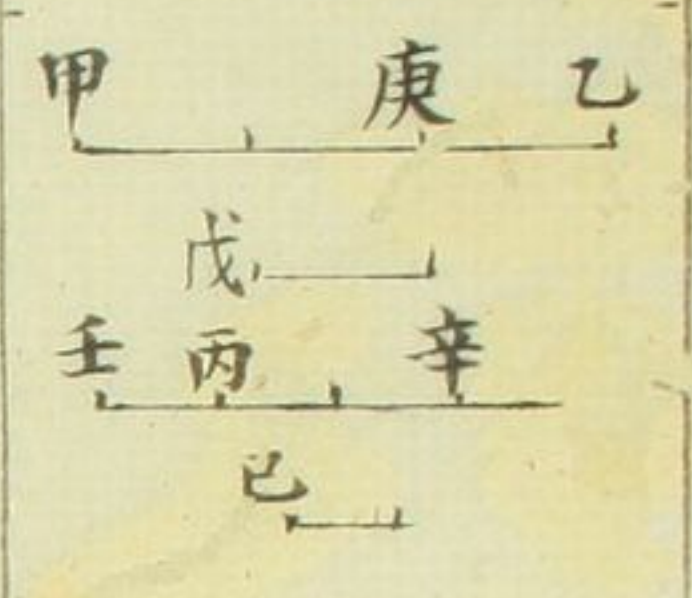 甲 庚 乙
戊
壬 丙 辛
己